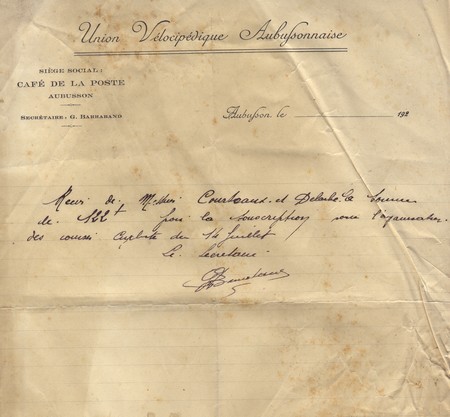 Union Vélocipédique Aubussonnaise
SIÈGE SOCIAL:
CAFÉ DE LA POSTE
AUBUSSON
SECRÉTAIRE: G. BARRABAND
Aubusson, le 192
de Messieurs et la somme
de 122 f pour la souscription l'organisation
des courses cycliste du 14 Juillet
Le Secrétaire